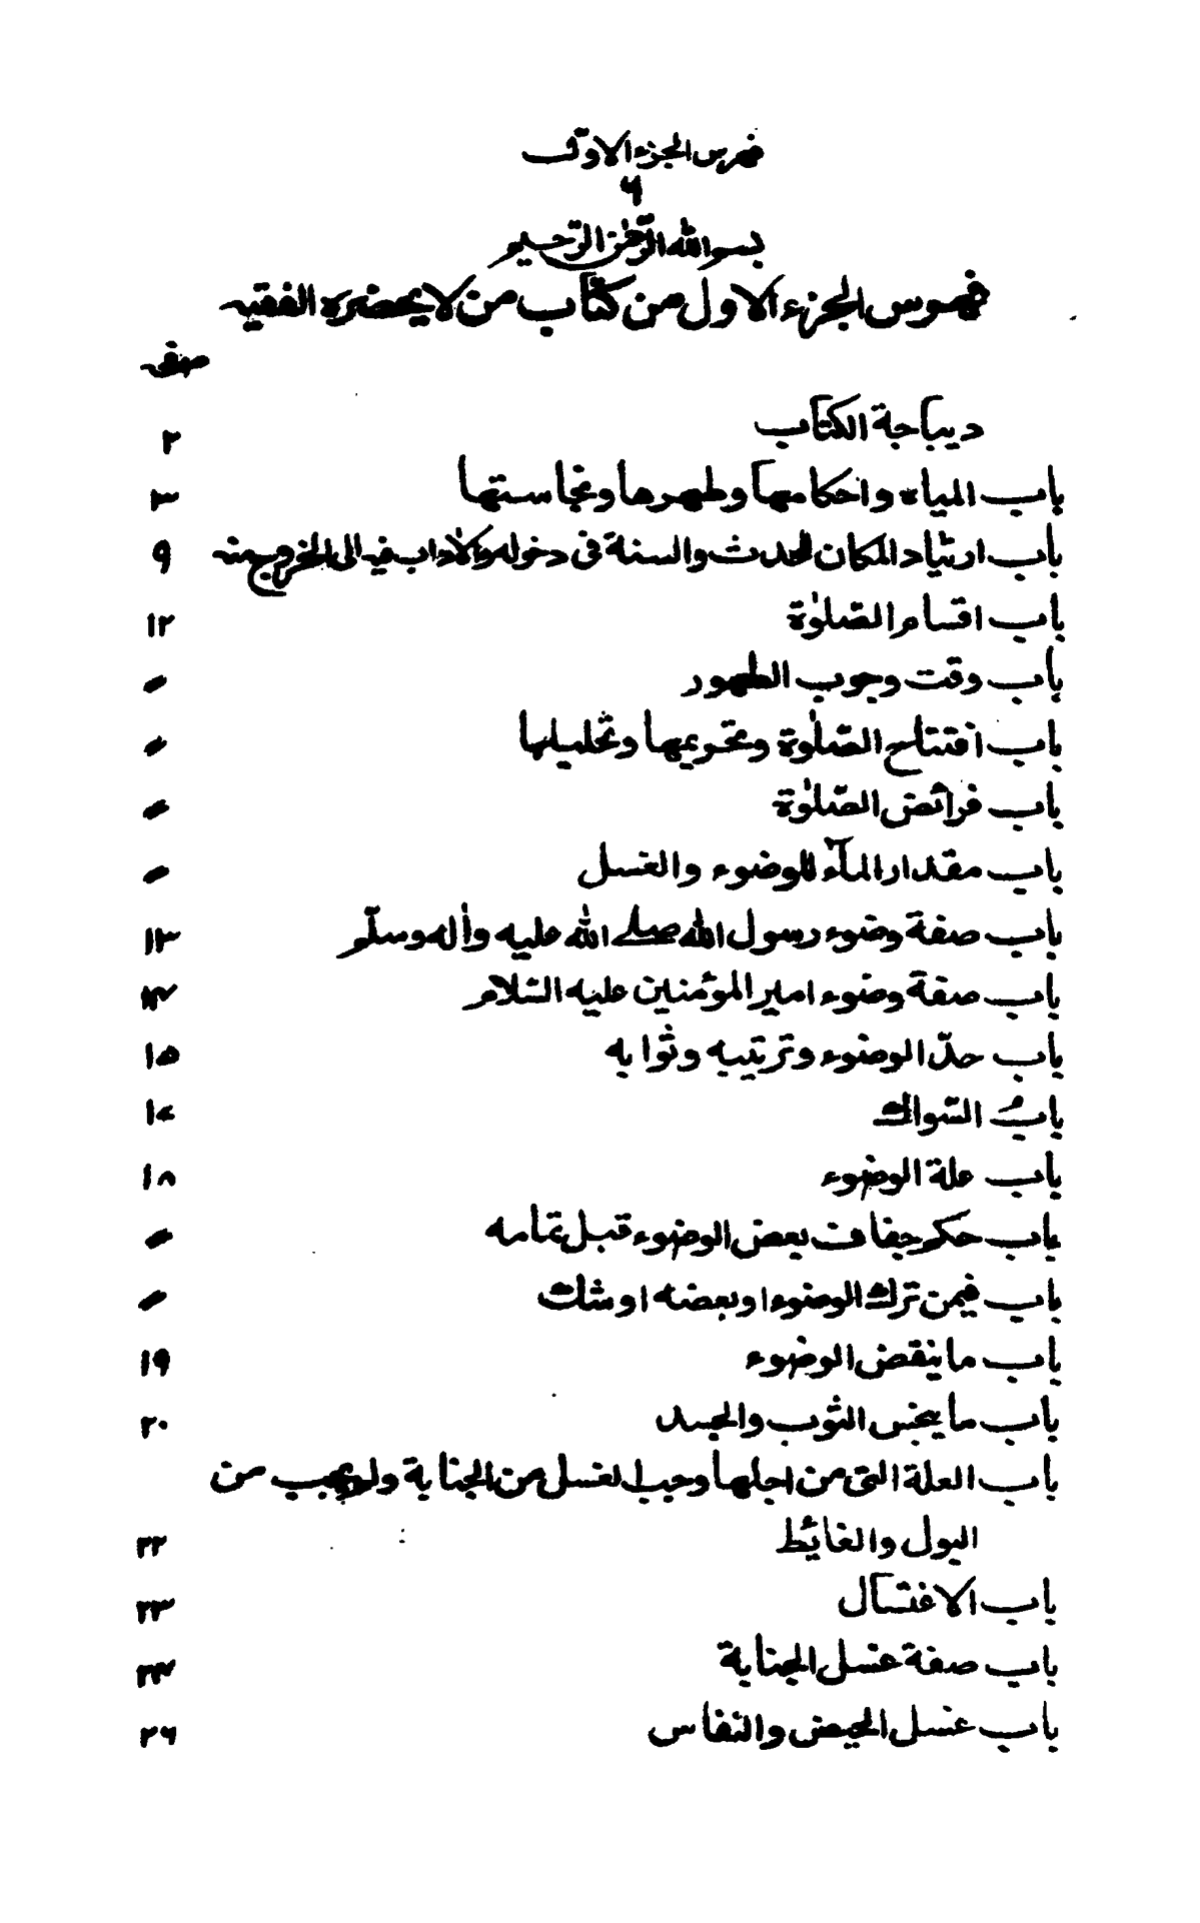 فهرس الجزء الاول
٦
بسم الله الرّحمٰن الرّحيم
فهرس الجزء الاول من كتاب من لا يحضره الفقيه
صفحہ
ديباجة الكتاب ٢
باب المياه واحكامها وطهرها ونجاستها ٣
باب ارتياد المكان للحدث والسنة فى دخوله والاٰداب فيه الى الخروج منه ٩
باب اقسام الصّلوٰة ١٢
باب وقت وجوب الطهور ״
باب افتتاح الصّلوٰة وتحريمها وتحليلها ״
باب فرائض الصّلوٰة ״
باب مقدار المآء للوضوء والغسل ״
باب صفة وضوء رسول الله صلے الله عليه واٰله وسلّم ١٣
باب صفة وضوء امير المؤمنين عليه السّلام ١٤
باب حدّ الوضوء وترتيبه وثوابه ١٥
باب السّواك ١٤
باب علة الوضوء ١٨
باب حكم جفاف بعض الوضوء قبل تمامه ״
باب فيمن ترك الوضوء او بعضه او شك ״
باب ما ينقض الوضوء ١٩
باب ما ينجس الثوب والجسد ٢٠
باب العلة التى من اجلها وجب الغسل من الجنابة ولم يجب من
البول والغائط ٢٢
باب الاغتسال ٢٣
باب صفة غسل الجنابة ٢٤
باب غسل الحيض والنفاس ٢٦